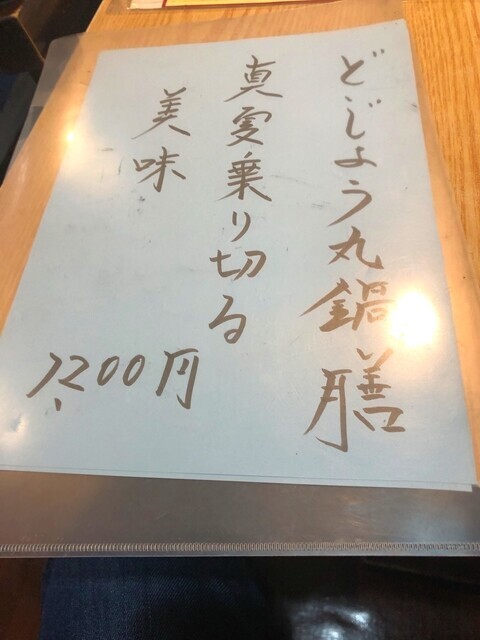 どじょう丸鍋膳
真夏乗り切る
美味
1,200円